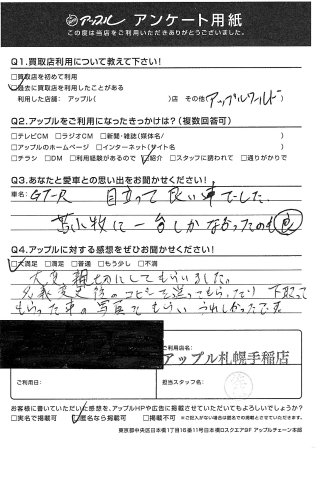 アップル アンケート用紙
この度は当店をご利用いただきありがとうございました。
Q1.買取店利用について教えて下さい!
□買取店を初めて利用
□過去に買取店を利用したことがある
利用した店舗: アップル( )店 その他(アップルワールド)
Q2.アップルをご利用になったきっかけは?(複数回答可)
□テレビCM □ラジオCM □新聞・雑誌(媒体名/ )
□アップルのホームページ □インターネット(サイト名 )
□チラシ □DM □利用経験があるので □紹介 □スタッフに誘われて □通りがかりで
Q3.あなたと愛車との思い出をお聞かせください!
車名: GT-R 目立って良い車でした。
苫小牧に一台しかなかったのも良
Q4.アップルに対する感想をぜひお聞かせください!
□大満足 □満足 □普通 □もう少し □不満
大変親切にしてもらいました。
名義変更後のコピーを送ってもらったり 下取って
もらった車の写真でもらい うれしかったです
ご利用店名:
アップル札幌手稲店
ご利用日: 担当スタッフ名:
お客様に書いていただいた感想を、アップルHPや広告に掲載させていただいてもよろしいでしょうか?
□実名で掲載可 □匿名なら掲載可 □掲載不可 ※ご記入がない場合は匿名での掲載とさせていただきます。
東京都中央区日本橋1丁目16番11号日本橋Dスクエア9F アップルチェーン本部